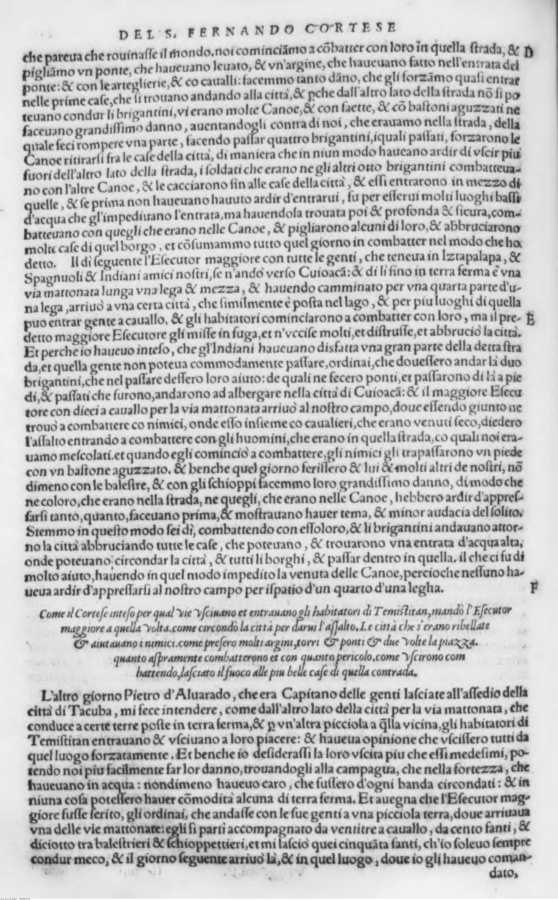 DEL S. FERNANDO CORTESE
che pareua che rouinasse il mondo. noi cominciãmo a cõbatter con loro in quella strada, & D
pigliãmo vn ponte, che haueuano leuato, & vn'argine, che haueuano fatto nell'entrata del
ponte: & con le arteglierie, & co caualli: facemmo tanto dãno, che gli forzãmo quasi entrar
nelle prime case, che si trouano andando alla città, & pche dall'altro lato della strada nõ si po
teuano condur li brigantini, vi erano molte Canoe, & con saette, & cõ bastoni aguzzati ne
faceuano grandissimo danno, auentandogli contra di noi, che erauamo nella strada, della
quale feci rompere vna parte, facendo passar quattro brigantini, iquali passati, forzarono le
Canoe ritirarsi fra le case della città, di maniera che in niun modo haueano ardir di vscir piu
fuori dell'altro lato della strada, i soldati che erano ne gli altri otto brigantini combatteua-
no con l'altre Canoe, & le cacciarono fin alle case della città, & essi entrarono in mezzo di
quelle, & se prima non haueuano hauuto ardir d'entrarui, fu per esserui molti luoghi bassi
d'acqua che gl'impediuano l'entrata, ma hauendola trouata poi & profonda & sicura, com-
batteuano con quegli che erano nelle Canoe, & pigliarono alcuni di loro, & abbruciarono
molte case di quel borgo, et cõsumammo tutto quel giorno in combatter nel modo che ho
detto. Il dì seguente l'Esecutor maggiore con tutte le genti, che teneua in Iztapalapa, &
Spagnuoli & Indiani amici nostri, se n'andò verso Cuioacã: & di lì fino in terra ferma è vna
via mattonata lunga vna lega & mezza, & hauendo camminato per vna quarta parte d'u-
na lega, arriuò a vna certa città, che similmente è posta nel lago, & per piu luoghi di quella
puo entrar gente a cauallo. & gli habitori cominciorono a combatter con loro, ma il pre- E
detto maggiore Esecutore gli misse in fuga, et n'vccise molti, et distrusse, et abbruciò la città.
Et perche io haueuo inteso, che gl'Indiani haueuano disfatta vna gran parte della detta stra
da, et quella gente non poteua commodamente passare, ordinai, che douessero andar là duo
brigantini, che nel passare dessero loro aiuto: de quali ne fecero ponti, et passarono di là a pie
di, & passati che furono, andarono ad albergare nella città di Cuioacã: & il maggiore Esecu
tore con dieci a cauallo per la via mattonata arriuò al nostro campo, doue essendo giunto ne
trouò a combattere co nimici, onde esso insieme co caualieri, che erano venuti seco, diedero
l'assalto entrando a combattere con gli huomini, che erano in quella strada, co quali noi era-
uamo mescolati. et quando egli cominciò a combattere, gli nimici gli trapassarono vn piede
con vn bastone aguzzato. & benche quel giorno ferissero & lui & molti altri de nostri, nõ
dimeno con le balestre, & con gli schioppi facemmo loro grandissimo danno, di modo che
ne coloro, che erano nella strada, ne quegli, che erano nelle Canoe, hebbero ardir d'appres-
sarsi tanto, quanto, faceuano prima, & mostrauano hauer tema, & minor audacia del solito.
Stemmo in questo modo sei dì, combattendo con essoloro, & li brigantini andauano attor-
no la città abbruciando tutte le case, che poteuano, & trouarono vna entrata d'acqua alta,
onde poteuano circondar la città, & tutti li borghi, & passar dentro in quella. il che ci fu di
molto aiuto, hauendo in quel modo impedito la venuta delle Canoe, percioche nessuno ha-
ueua ardir d'appressarsi al nostro campo per ispatio d'un quarto d'una legha. F
Come il Cortese inteso per qual vie vsciuano et entrauano gli habitatori di Temistitan, mandò l'Esecutor
maggiore a quella volta. come circondò la città per darui l'assalto. Le città che s'erano ribellate
& aiutauano i nimici. come presero molti argini, torri & ponti & due volte la piazza.
quanto aspramente combatterono et con quanto pericolo. come vscirono com
battendo, lasciato il fuoco alle piu belle case di quella contrada.
L'altro giorno Pietro d'Aluarado, che era Capitano delle genti lasciate all'assedio della
città di Tacuba, mi fece intendere, come dall'altro lato della città per la via mattonata, che
conduce a certe terre poste in terra ferma, & p vn'altra picciola a q̃lla vicina, gli habitori di
Temistitan entrauano & vsciuano a loro piacere: & haueua opinione che vscissero tutti da
quel luogo forzatamente. Et benche io desiderassi la loro vscita piu che essi medesimi, po-
tendo noi piu facilmente far lor danno, trouandogli alla campagua, che nella fortezza, che
haueuano in acqua: nondimeno haueuo caro, che fussero d'ogni banda circondati: & in
niuna cosa potessero hauer cõmodità alcuna di terra ferma. Et auegna che l'Esecutor mag-
giore fusse ferito, gli ordinai, che andasse con le sue genti a vna picciola terra, doue arriuaua
vna delle vie mattonate: egli si partì accompagnato da ventitre a cauallo, da cento fanti, &
diciotto tra balestrieri & schioppettieri, et mi lasciò quei cinquãta fanti, ch'io soleuo sempre
condur meco, & il giorno seguente arriuò là, & in quel luogo, doue io gli haueuo coman-
dato,